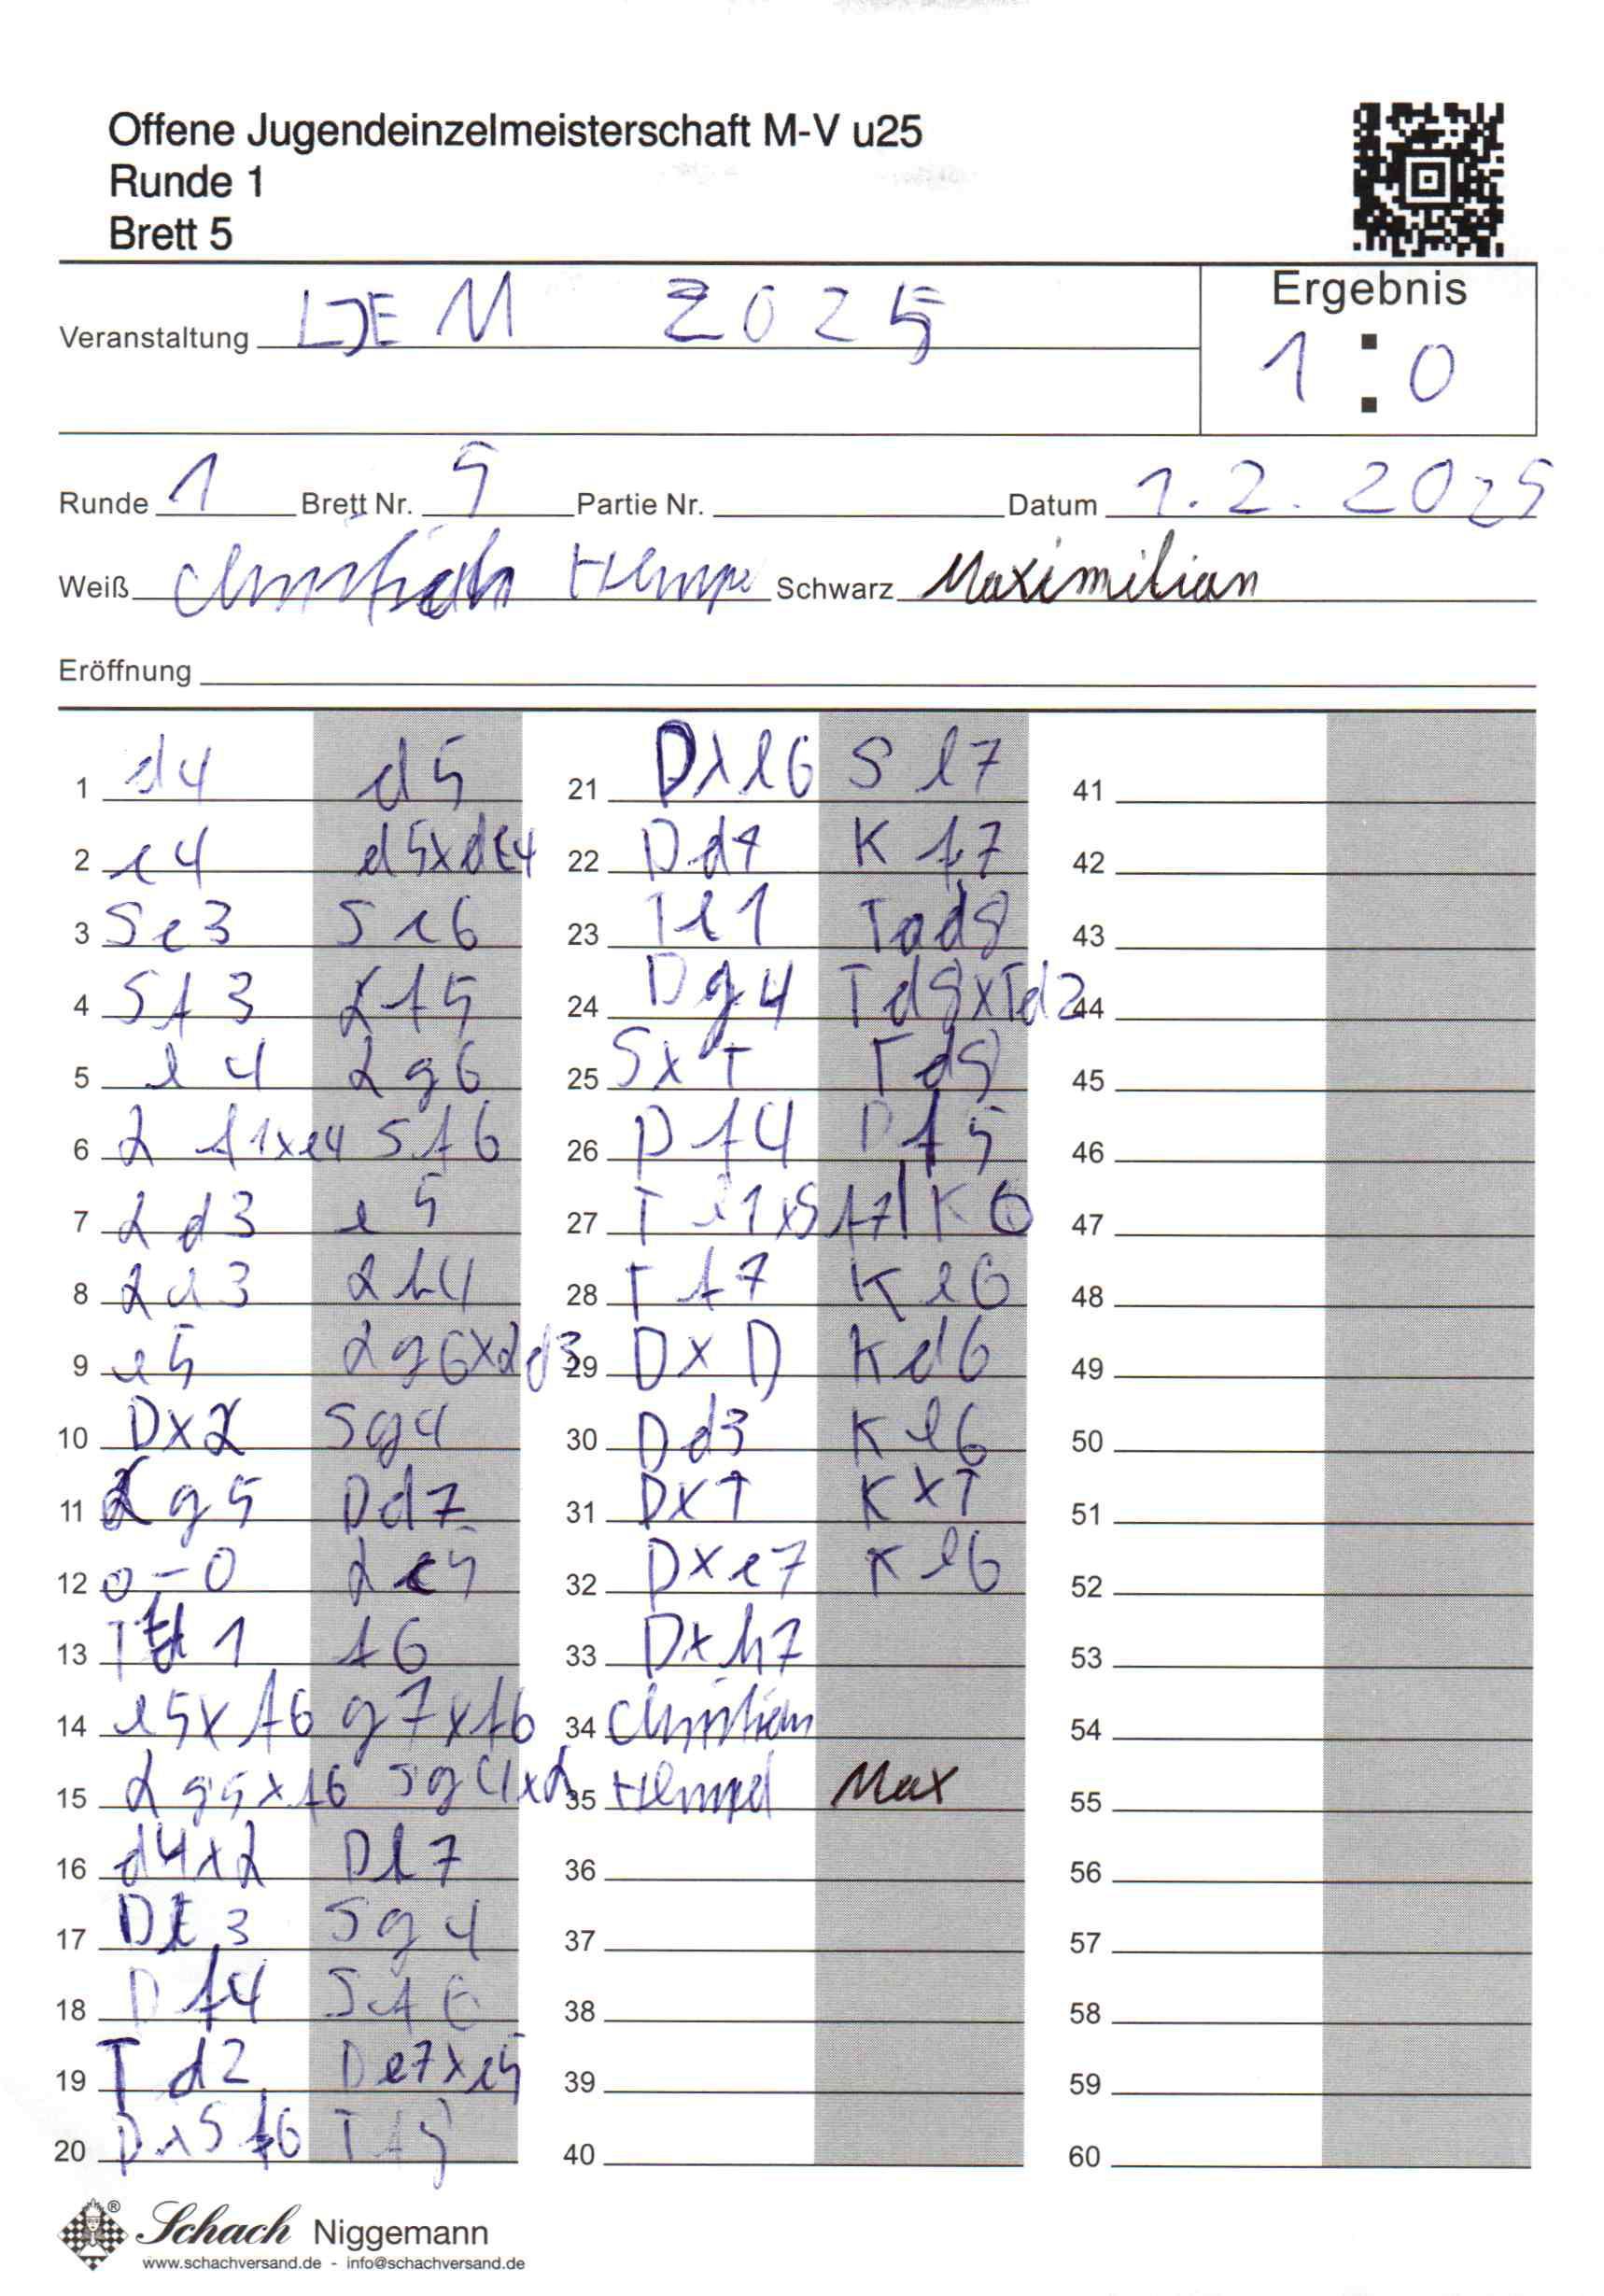 Offene Jugendeinzelmeisterschaft M-V u25
Runde 1
Brett 5
Ergebnis
Veranstaltung LJEM 2025
1 : 0
Runde 1 Brett Nr. 5 Partie Nr. Datum 1.2.2025
Weiß Christian Hempel Schwarz Maximilian
Eröffnung
1 d4 d5 21 Dxe6 S e7 41
2 c4 d5xdc4 22 Dd4 K f7 42
3 Sc3 Sc6 23 Te1 Tad8 43
4 Sf3 Lf5 24 Dg4 Td8xTd2 44
5 e4 Lg6 25 SxT Td8 45
6 L f1xc4 Sf6 26 Df4 Df5 46
7 Ld3 e5 27 T e1xS f7 K 6 47
8 Ld3 Lh4 28 T f7 K e6 48
9 e5 Lg6xLd3 29 DxD Kd6 49
10 DxL Sg4 30 Dd3 K e6 50
11 Lg5 Dd7 31 DxT KxT 51
12 0-0 Le5 32 Dxc7 K e6 52
13 T d1 f6 33 Dxh7 53
14 e5xf6 g7xf6 34 Christian 54
15 Lg5xf6 Sg4xL 35 Hempel Max 55
16 d4xL De7 36 56
17 De3 Sg4 37 57
18 Df4 Sf6 38 58
19 T d2 De7xe5 39 59
20 DxSf6 Tf8 40 60
Schach Niggemann
www.schachversand.de - info@schachversand.de